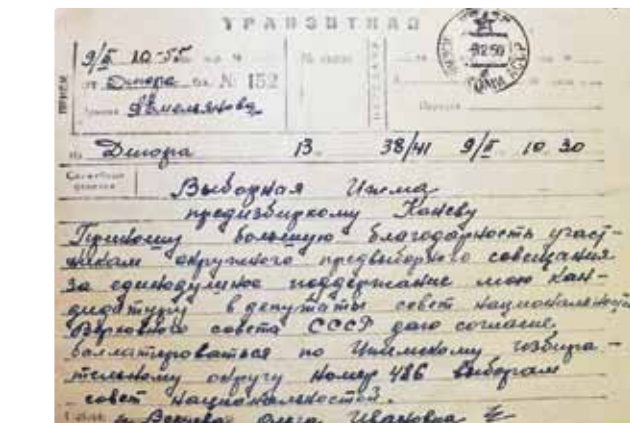 ТРАНЗИТНАЯ
9/II 10-55
ПРИЕМ
от Диюра бл. № 152
Принял Емельянова
№ связи
Передал
9 2 50
КОМИ АССР
Из Диюра 13 38/41 9/II 10 30
Служебные отметки
Выборная Ижма
предизбиркому Каневу
Приношу большую благодарность участ-
никам окружного предвыборного совещания
за единодушное поддержание мою кан-
дидатуру в депутаты совет национальностей
Верховного совета СССР даю согласие
баллатироваться по Ижемскому избира-
тельному округу номер 486 выборам
совет национальностей.
Ольга Ивановна